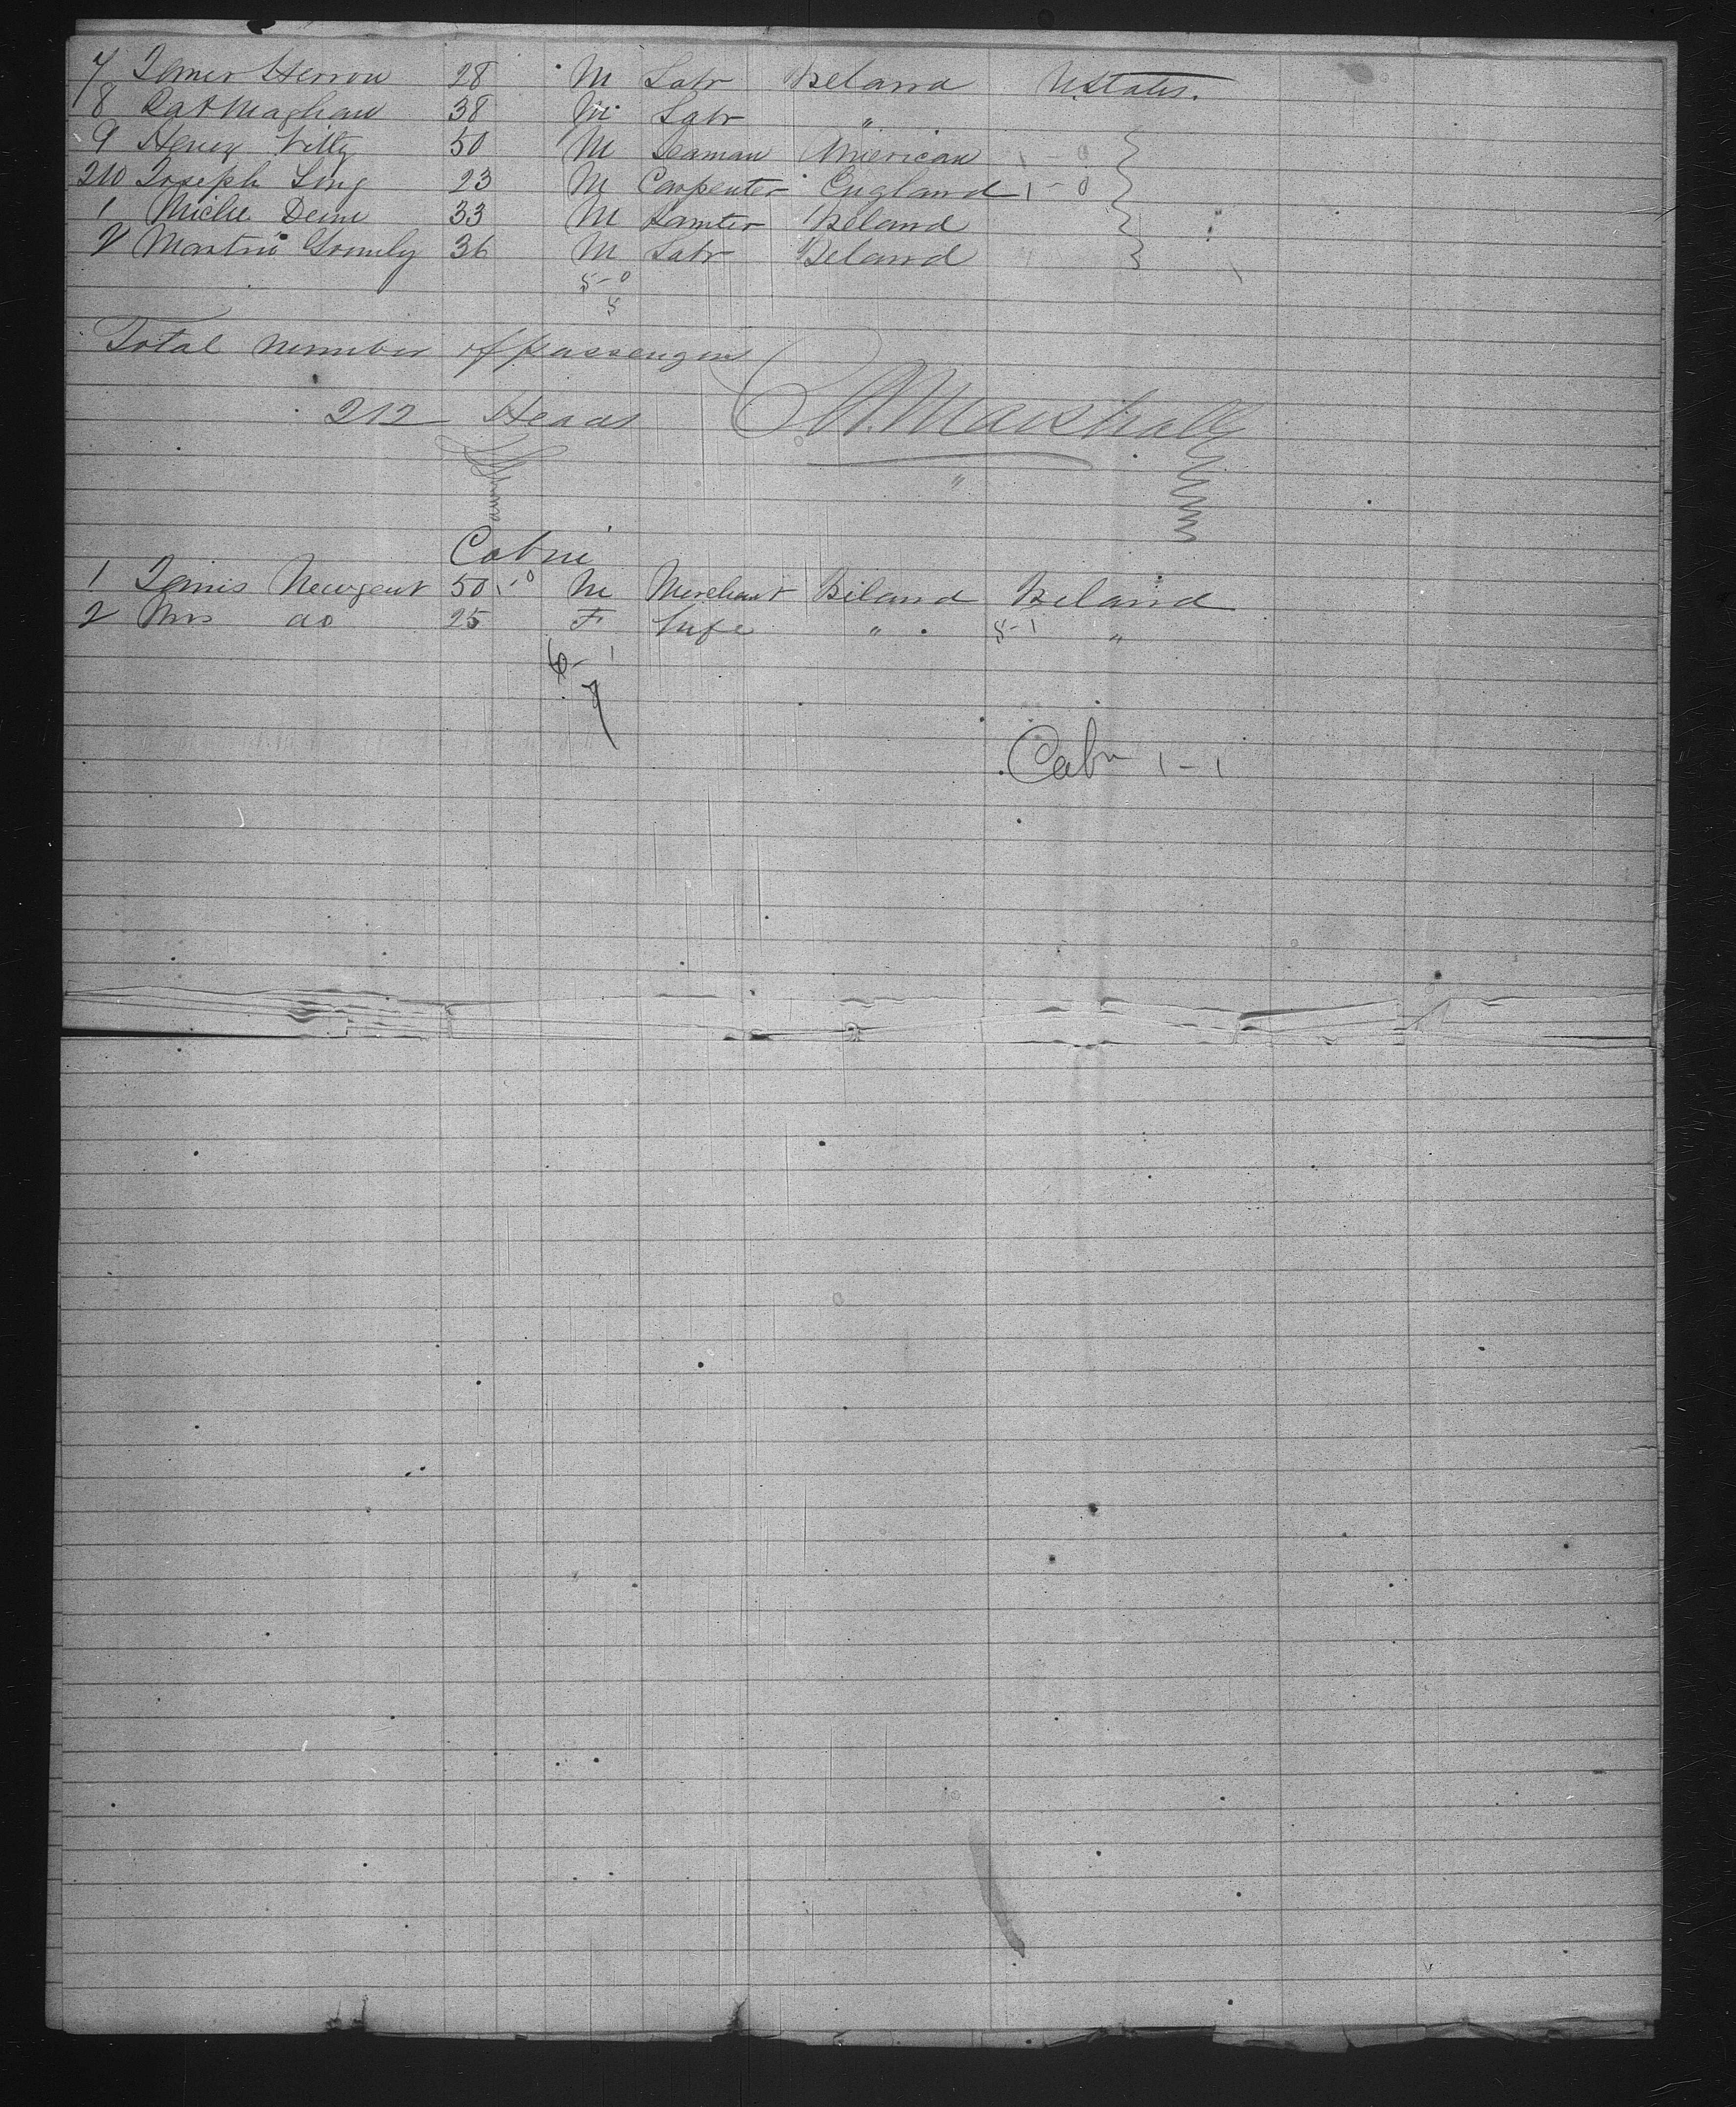 7 James Herron 28 M Labr Ireland U States.
8 Pat Maghan 38 M Labr "
9 Henry 50 M Seaman American 1-0
210 Joseph Long 23 M Carpenter England 1-0
1 Michl 33 M Painter Ireland
2 Martin Gormly 36 M Labr Ireland
5-0
5
Total number of passengers
212 Heads Marshall
"
Cabin
1 James Newgent 50 1-0 M Merchant Ireland Ireland
2 Mrs do 25 F Wife " 5-1 "
6-1
7
Cabn 1-1